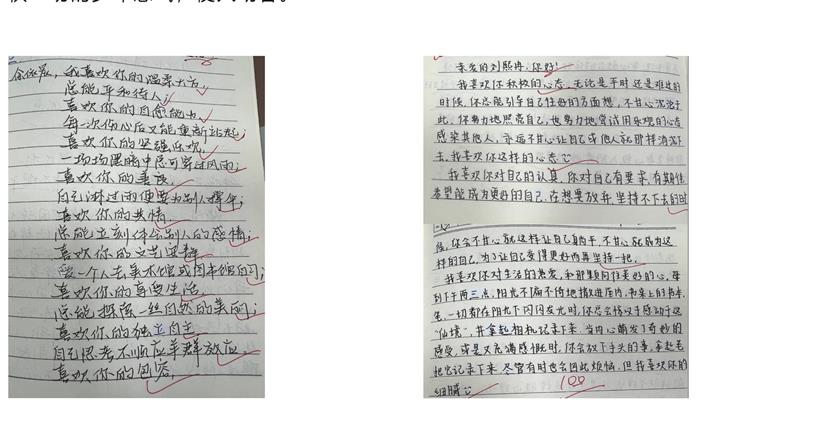 余依宸，我喜欢你的温柔大方，
总能平和待人；
喜欢你的自愈能力，
每一次伤心后又能重新站起；
喜欢你的坚强乐观，
一场场黑暗中总可穿过风雨；
喜欢你的善良，
自己淋过雨便要为别人撑伞；
喜欢你的共情，
总能立刻体会别人的感情；
喜欢你的
一个人去美术馆或图书馆自习；
喜欢你的享受生活，
总能探索一丝自然的美丽；
喜欢你的独立自主，
自己思考不顺应羊群效应，
喜欢你的包容，
亲爱的刘照冉，你好！
我喜欢你积极的心态，无论是平时还是难过的
时候，你总能引导自己往好的方面想，不甘心沉沦于
此，你努力地照亮自己，也努力地尝试用乐观的心态
感染其他人，永远不甘心让自己或他人就那样消沉下
去，我喜欢你这样的心态
我喜欢你对自己的认真，你对自己有要求，有期待
希望能成为更好的自己，在想要放弃、坚持不下去的时
候，你会不甘心就这样让自己
样的自己，为了让自己变得更好而再坚持一把。
我喜欢你对生活的热爱，和那颗向往美好的心，每
到下午两三点，阳光不偏不倚地撒进屋内，书桌上的书本、
笔，一切都在阳光下闪闪发光时，你总会情不自禁感动于这
“仙境”，并拿起相机记录下来，当内心萌发了奇妙的
感受，或是又充满感慨时，你会放下手头的事，拿起笔
把它记录下来，尽管有时也会因此烦恼，但我喜欢你的
细腻
100